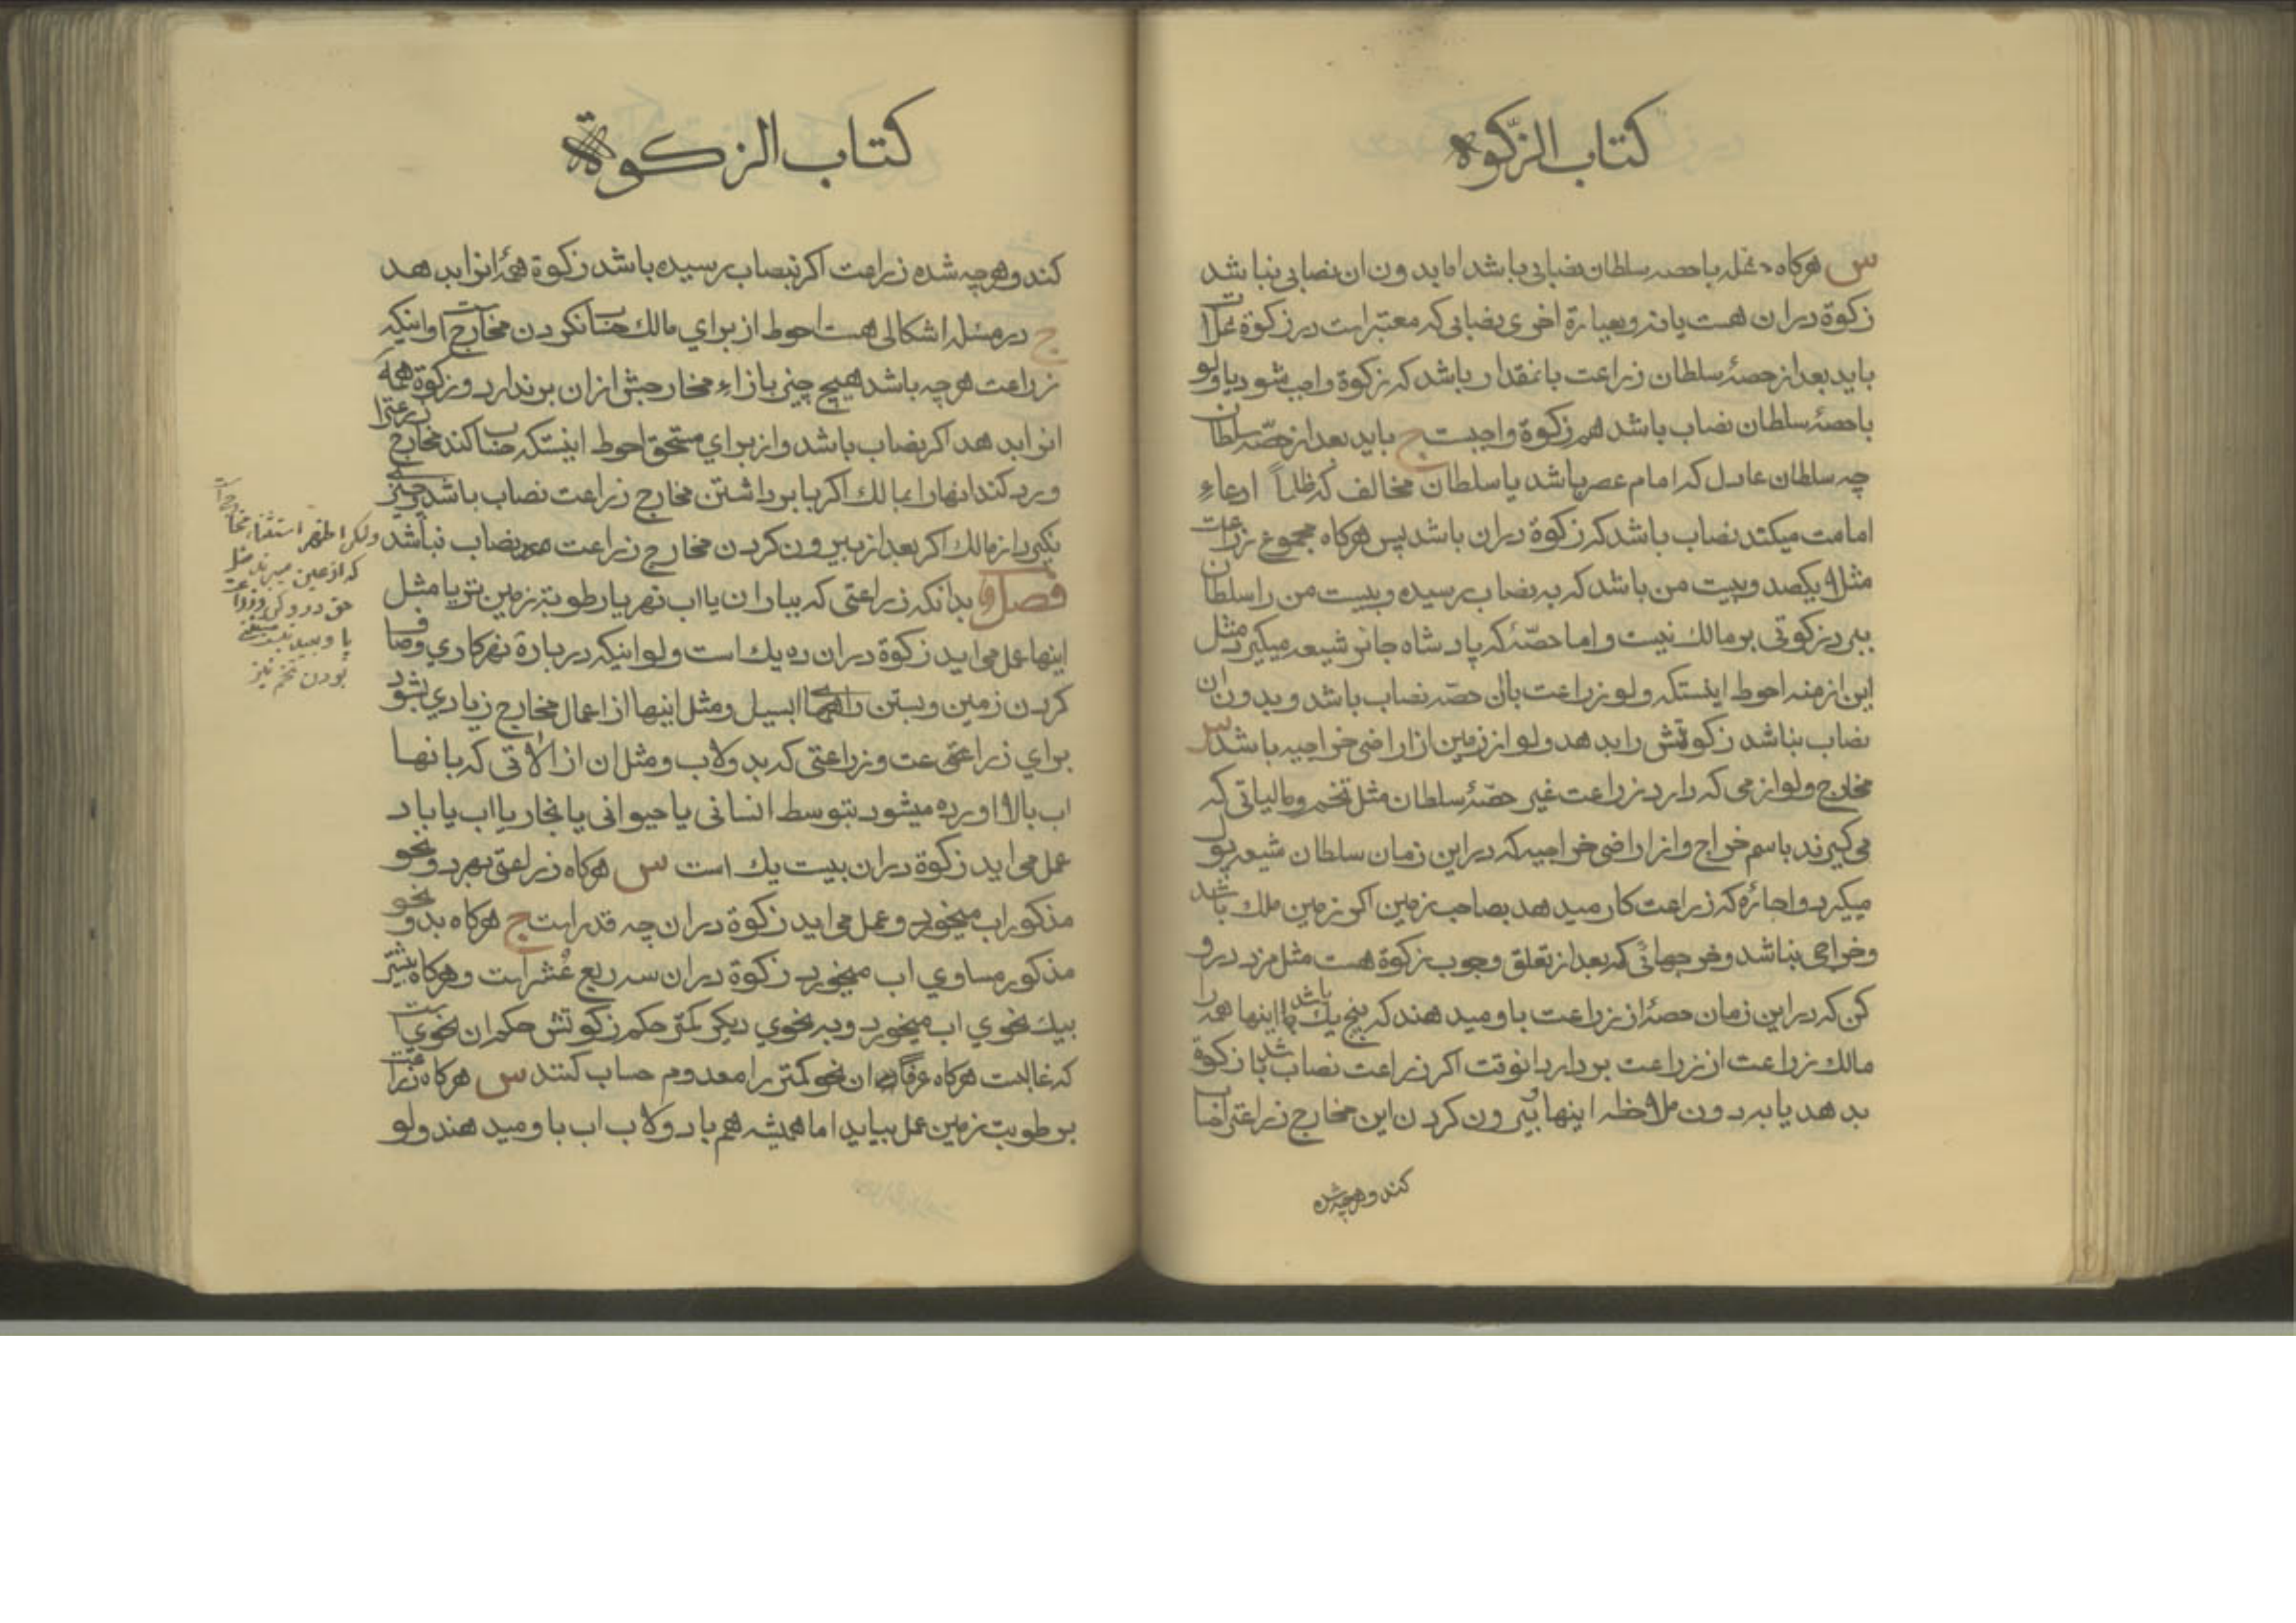 كتاب الزّكوة
س هركاه غله با حصه سلطان نصابی باشد اما بدون ان نصابی نباشد
زكوة در ان هست یا نه و بعبارة اخری نصابی كه معتبر است در زكوة غلات
باید بعد از حصهٔ سلطان زراعت بانمقدار باشد كه زكوة واجب شود یا ولو
با حصهٔ سلطان نصاب باشد هم زكوة واجبست ج باید بعد از حصّه سلطان
چه سلطان عادل كه امام عصر باشد یا سلطان مخالف كه ظلماً ادعاء
امامت میكند نصاب باشد كه زكوة دران باشد پس هركاه مجموع زراعت
مثلا یكصد و بیست من باشد كه به نصاب رسیده و بیست من را سلطان
ببرد زكوتی بر مالك نیست و اما حصّهٔ كه پادشاه جائر شیعه میكیرد مثل
این ازمنه احوط اینستكه ولو زراعت بان حصّه نصاب باشد و بدون ان
نصاب نباشد زكوتش را بدهد ولو از زمین از اراضی خراجیه باشد س
مخارج و لوازمی كه دارد زراعت غیر حصّهٔ سلطان مثل تخم و مالیاتی كه
می كیرند باسم خراج و از اراضی خراجیه كه در این زمان سلطان شیعه پول
میكیرد و اجارهٔ كه زراعت كار میدهد بصاحب زمین اكر زمین ملك باشد
و خراجی نباشد و خرجهائی كه بعد از تعلق وجوب زكوة هست مثل مزد درو
كن كه در این زمان حصهٔ از زراعت باو میدهند كه پنج یك باشد اینها همه را
مالك زراعت از زراعت بردارد انوقت اكر زراعت نصاب باشد زكوة
بدهد یا بدون ملاحظه اینها و بیرون كردن این مخارج زراعت را حساب
كند و هرچه شده
كتاب الزكوة
كند و هرچه شده زراعت اكر بنصاب رسیده باشد زكوة همهٔ انرا بدهد
ج در مسئله اشكالی هست احوط از برای مالك حساب نكردن مخارج است و اینكه
زراعت هرچه باشد هیچ چیز بازاء مخارجش ازان برندارد و زكوة همه
انرا بدهد اكر نصاب باشد و از برای مستحق احوط اینستكه حساب كند مخارج زراعت را
و رد كند انها را بمالك اكر با برداشتن مخارج زراعت نصاب باشد و چیزی
نكیرد از مالك اكر بعد از بیرون كردن مخارج زراعت نصاب نباشد
ولكن اظهر استثناء مخارجی است
كه از عین میبرند مثل
حق درو كن
بودن تخم نیز
فصل بدانكه زراعتی كه بباران یا اب نهر یا رطوبة زمین تر یا مثل
اینها عمل می اید زكوة در ان ده یك است ولو اینكه در باره نهركاری و صاف
كردن زمین و بستن راههاا بسیل و مثل اینها از اعمال مخارج زیادی بشود
برای زراعت و زراعتی كه بدولاب و مثل ان از الاتی كه بانها
اب بالا اورده میشود بتوسط انسانی یا حیوانی یا بخار یا اب یا باد
عمل می اید زكوة در ان بیست یك است س هركاه زراعتی بهر دو نحو
مذكور اب میخورد و عمل می اید زكوة در ان چه قدر است ج هركاه بدو نحو
مذكور مساوی اب میخورد زكوة در ان سه ربع عُشر است و هركاه بیشتر
بیك نحوی اب میخورد و به نحوی دیكر كمتر حكم زكوتش حكم ان نحوی است
كه غالبست هركاه عرفاً ان نحو كمتر را معدوم حساب كنند س هركاه زراعت
برطوبت زمین عمل بیاید اما همیشه هم با دولاب اب باو میدهند ولو